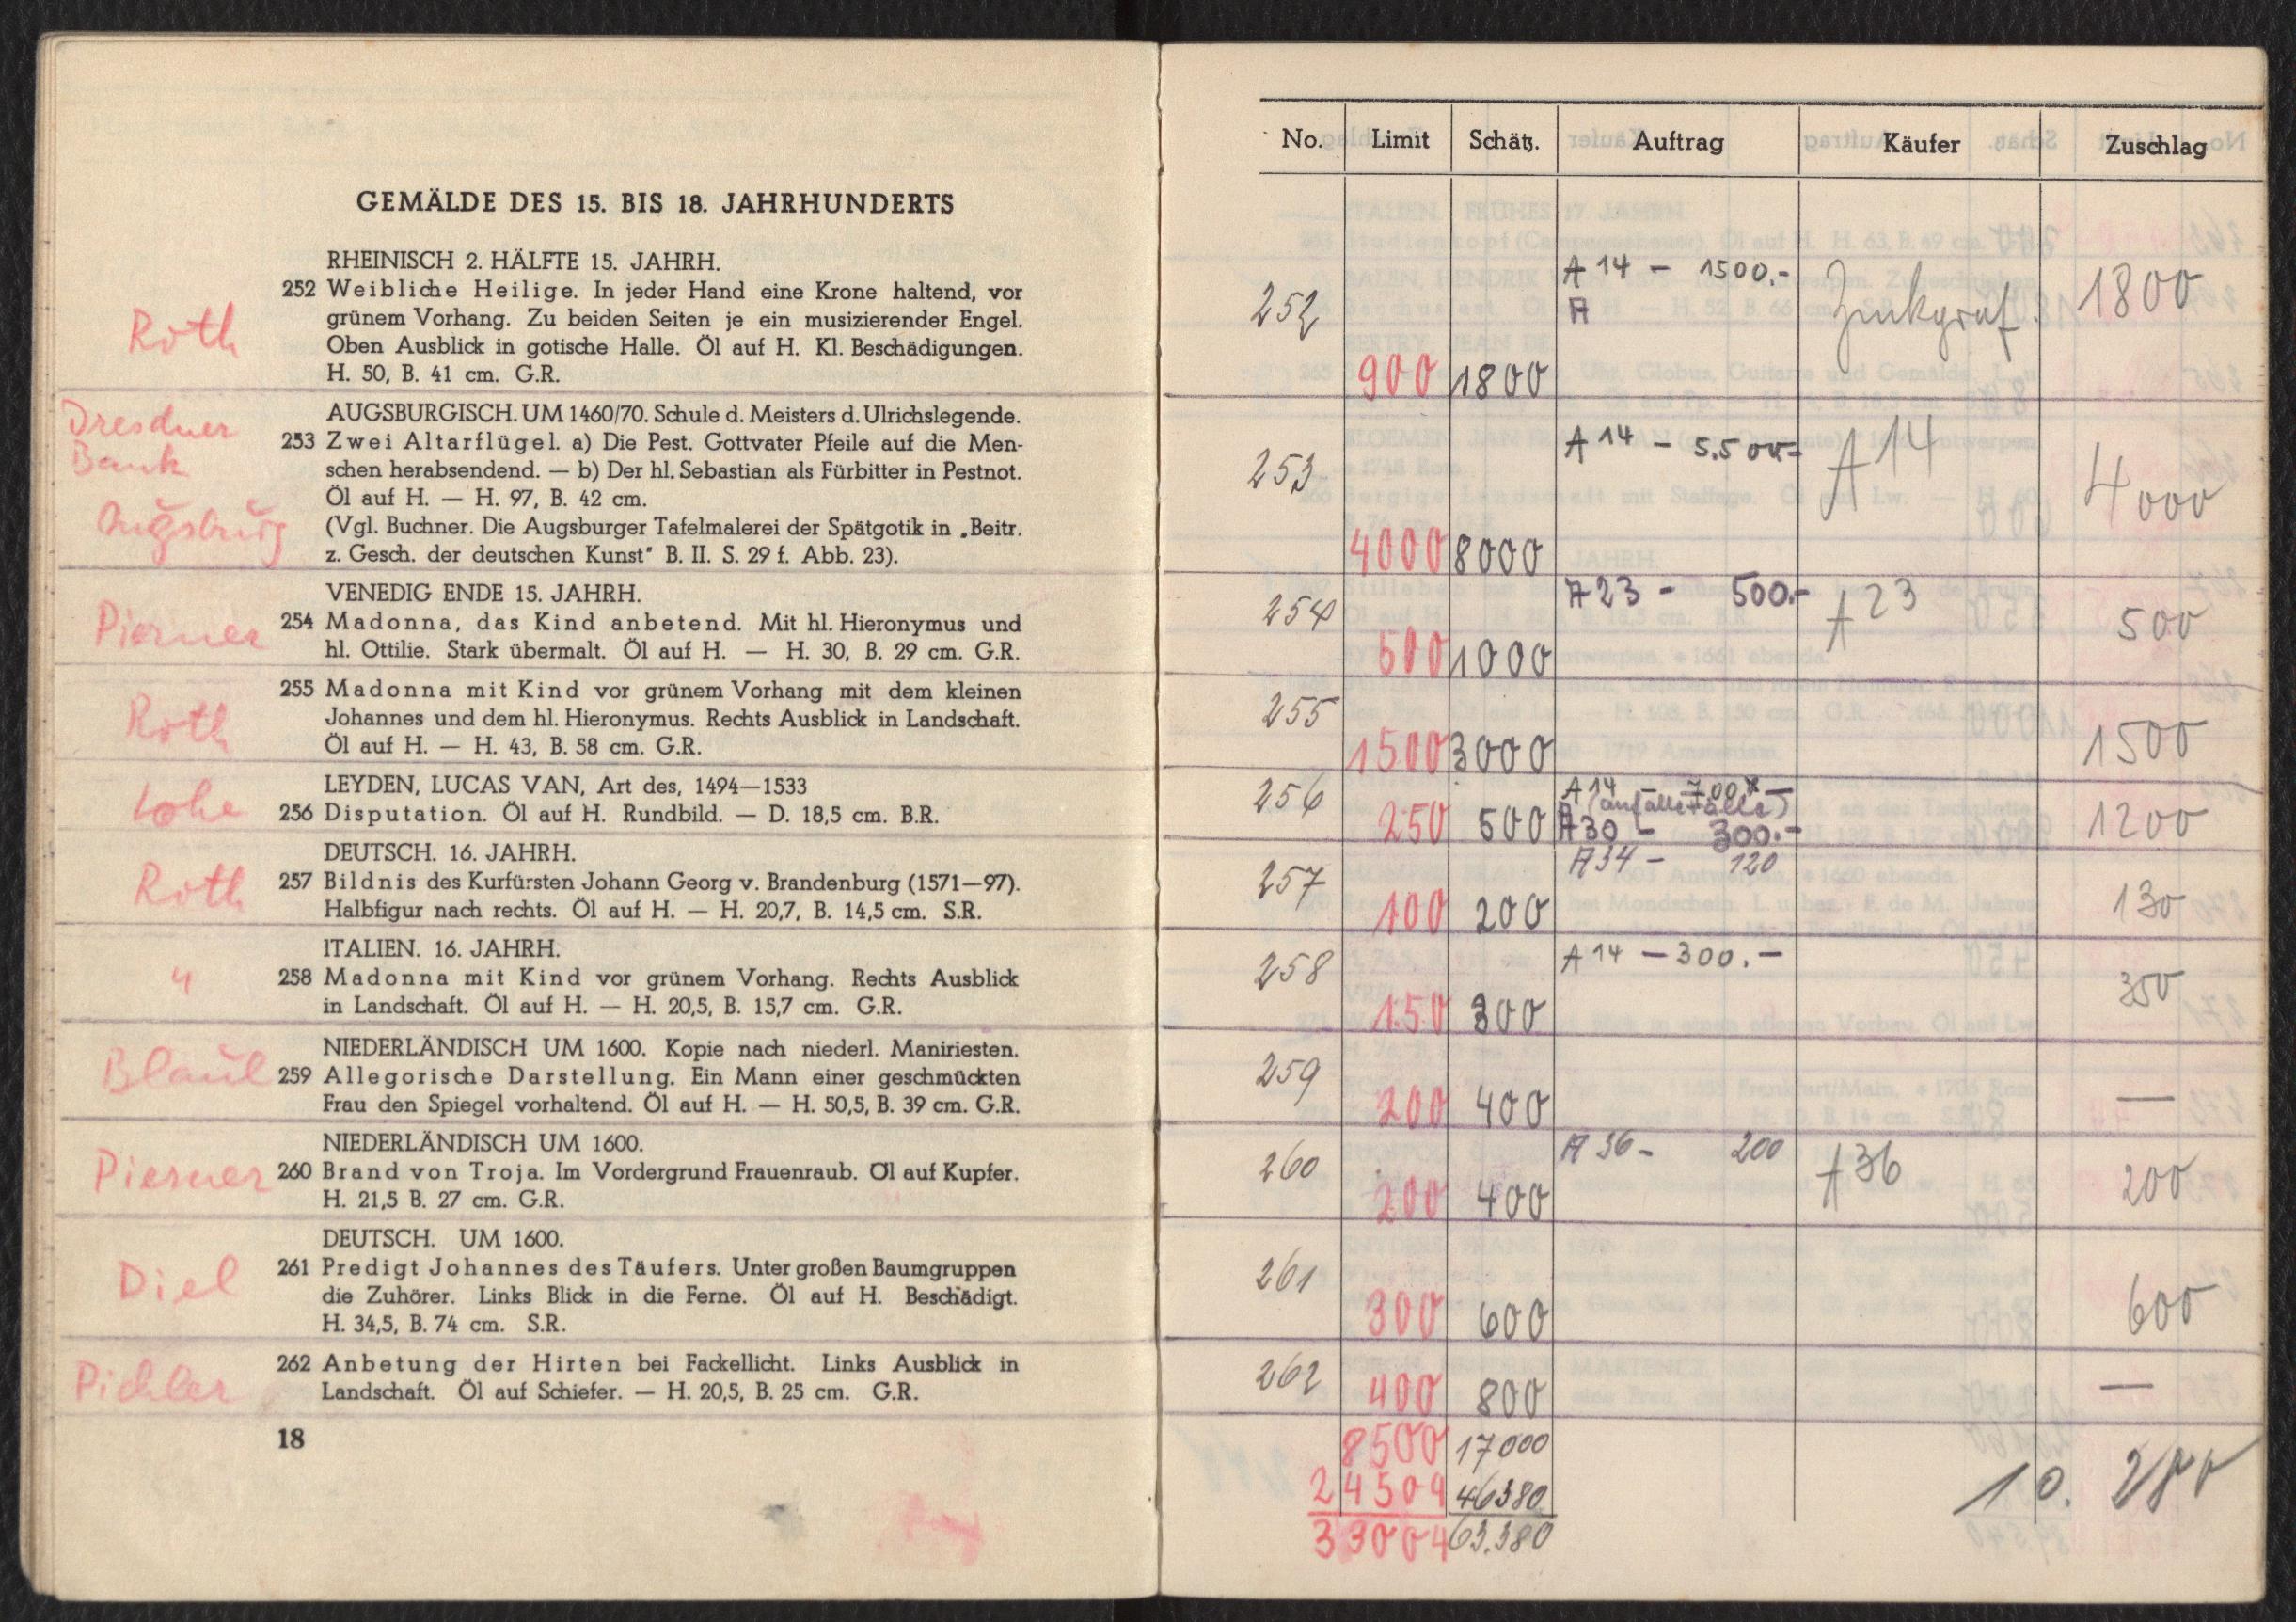 GEMÄLDE DES 15. BIS 18. JAHRHUNDERTS
RHEINISCH 2. HÄLFTE 15. JAHRH.
252 Weibliche Heilige. In jeder Hand eine Krone haltend, vor
grünem Vorhang. Zu beiden Seiten je ein musizierender Engel.
Roth
Oben Ausblick in gotische Halle. Öl auf H. Kl. Beschädigungen.
H. 50, B. 41 cm. G.R.
AUGSBURGISCH. UM 1460/70. Schule d. Meisters d. Ulrichslegende.
Dresdner
253 Zwei Altarflügel. a) Die Pest. Gottvater Pfeile auf die Men-
Bank
schen herabsendend. — b) Der hl. Sebastian als Fürbitter in Pestnot.
Öl auf H. — H. 97, B. 42 cm.
Augsburg
(Vgl. Buchner. Die Augsburger Tafelmalerei der Spätgotik in „Beitr.
z. Gesch. der deutschen Kunst" B. II. S. 29 f. Abb. 23).
VENEDIG ENDE 15. JAHRH.
Pierner 254 Madonna, das Kind anbetend. Mit hl. Hieronymus und
hl. Ottilie. Stark übermalt. Öl auf H. — H. 30, B. 29 cm. G.R.
255 Madonna mit Kind vor grünem Vorhang mit dem kleinen
Roth
Johannes und dem hl. Hieronymus. Rechts Ausblick in Landschaft.
Öl auf H. — H. 43, B. 58 cm. G.R.
LEYDEN, LUCAS VAN, Art des, 1494—1533
Lohe 256 Disputation. Öl auf H. Rundbild. — D. 18,5 cm. B.R.
DEUTSCH. 16. JAHRH.
Roth 257 Bildnis des Kurfürsten Johann Georg v. Brandenburg (1571—97).
Halbfigur nach rechts. Öl auf H. — H. 20,7, B. 14,5 cm. S.R.
ITALIEN. 16. JAHRH.
" 258 Madonna mit Kind vor grünem Vorhang. Rechts Ausblick
in Landschaft. Öl auf H. — H. 20,5, B. 15,7 cm. G.R.
NIEDERLÄNDISCH UM 1600. Kopie nach niederl. Maniriesten.
Blaul 259 Allegorische Darstellung. Ein Mann einer geschmückten
Frau den Spiegel vorhaltend. Öl auf H. — H. 50,5, B. 39 cm. G.R.
NIEDERLÄNDISCH UM 1600.
Pierner 260 Brand von Troja. Im Vordergrund Frauenraub. Öl auf Kupfer.
H. 21,5 B. 27 cm. G.R.
DEUTSCH. UM 1600.
Diel 261 Predigt Johannes des Täufers. Unter großen Baumgruppen
die Zuhörer. Links Blick in die Ferne. Öl auf H. Beschädigt.
H. 34,5, B. 74 cm. S.R.
Pichler 262 Anbetung der Hirten bei Fackellicht. Links Ausblick in
Landschaft. Öl auf Schiefer. — H. 20,5, B. 25 cm. G.R.
18
No. Limit Schätz. Auftrag Käufer Zuschlag
A 14 - 1500.-
252 900 1800 A Zinkgraf 1800
253 4000 8000 A 14 - 5.500- A 14 4000
254 500 1000 A 23 - 500.- A 23 500
255 1500 3000 1500
A 14 - 700 x -
(auf alle Fälle)
256 250 500 A 30 - 300.- 1200
257 100 200 A 34 - 120 130
258 150 300 A 14 - 300.- 350
259 200 400 —
260 200 400 A 36 - 200 A 36 200
261 300 600 600
262 400 800 —
8500 17000
24504 46380
33004 63.380
10.280